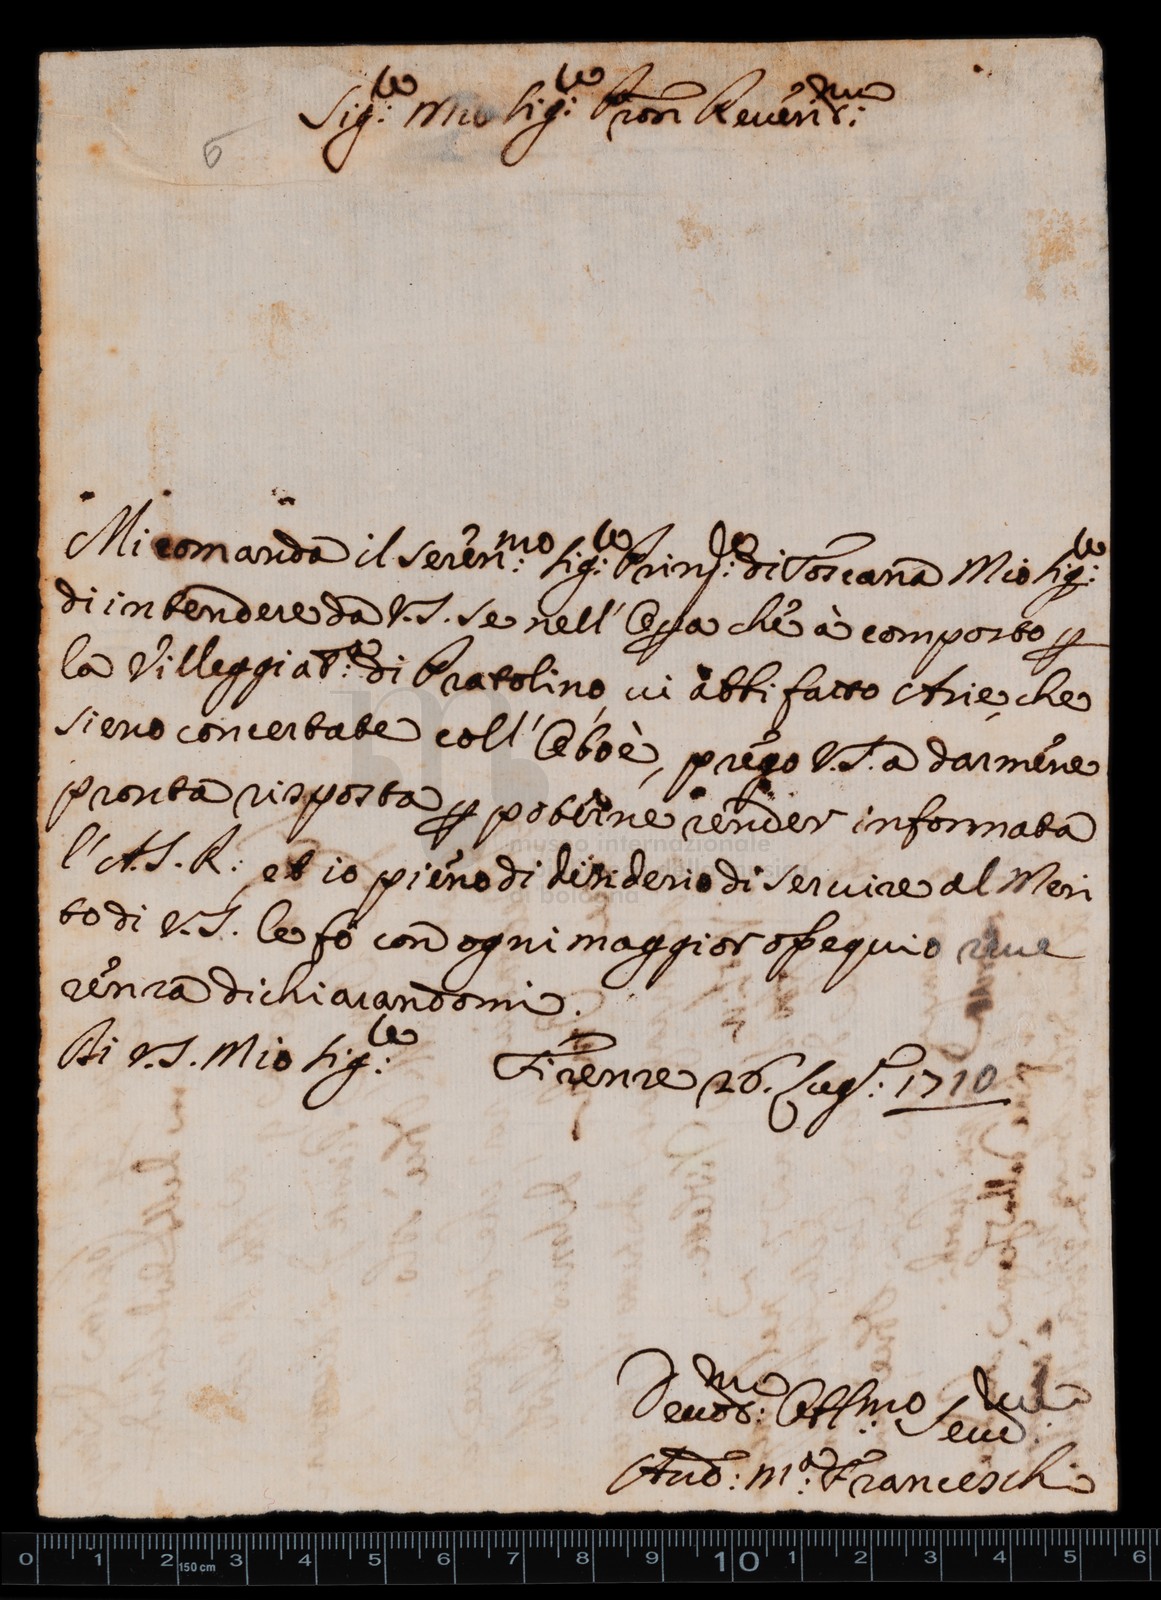 Sig:re Mio Sig:re Pron Reverendiss:mo
6
Mi comanda il Seren:mo Sig:re Prinp:e di Toscana Mio Sig:re
di intendere da V.S. se nell' Opera che à composto p
la Villeggiat:ra di Pratolino, vi abbi fatto Arie, che
sieno concertate coll' Oboè, prego V.S. a darmene
pronta risposta p poterne render informata
l' A.S.R: et io pieno di desiderio di servire al Meri
to di V.S. le fò con ogni maggior ossequio reve
renza dichiarandomi.
Di V.S. Mio Sig:re Firenze 26. Lug:o 1710
museo internazionale
di bologna
Devot:mo Obl:mo Serv:
And: M:a Franceschi
0 1 2 150 cm 3 4 5 6 7 8 9 10 1 2 3 4 5 6